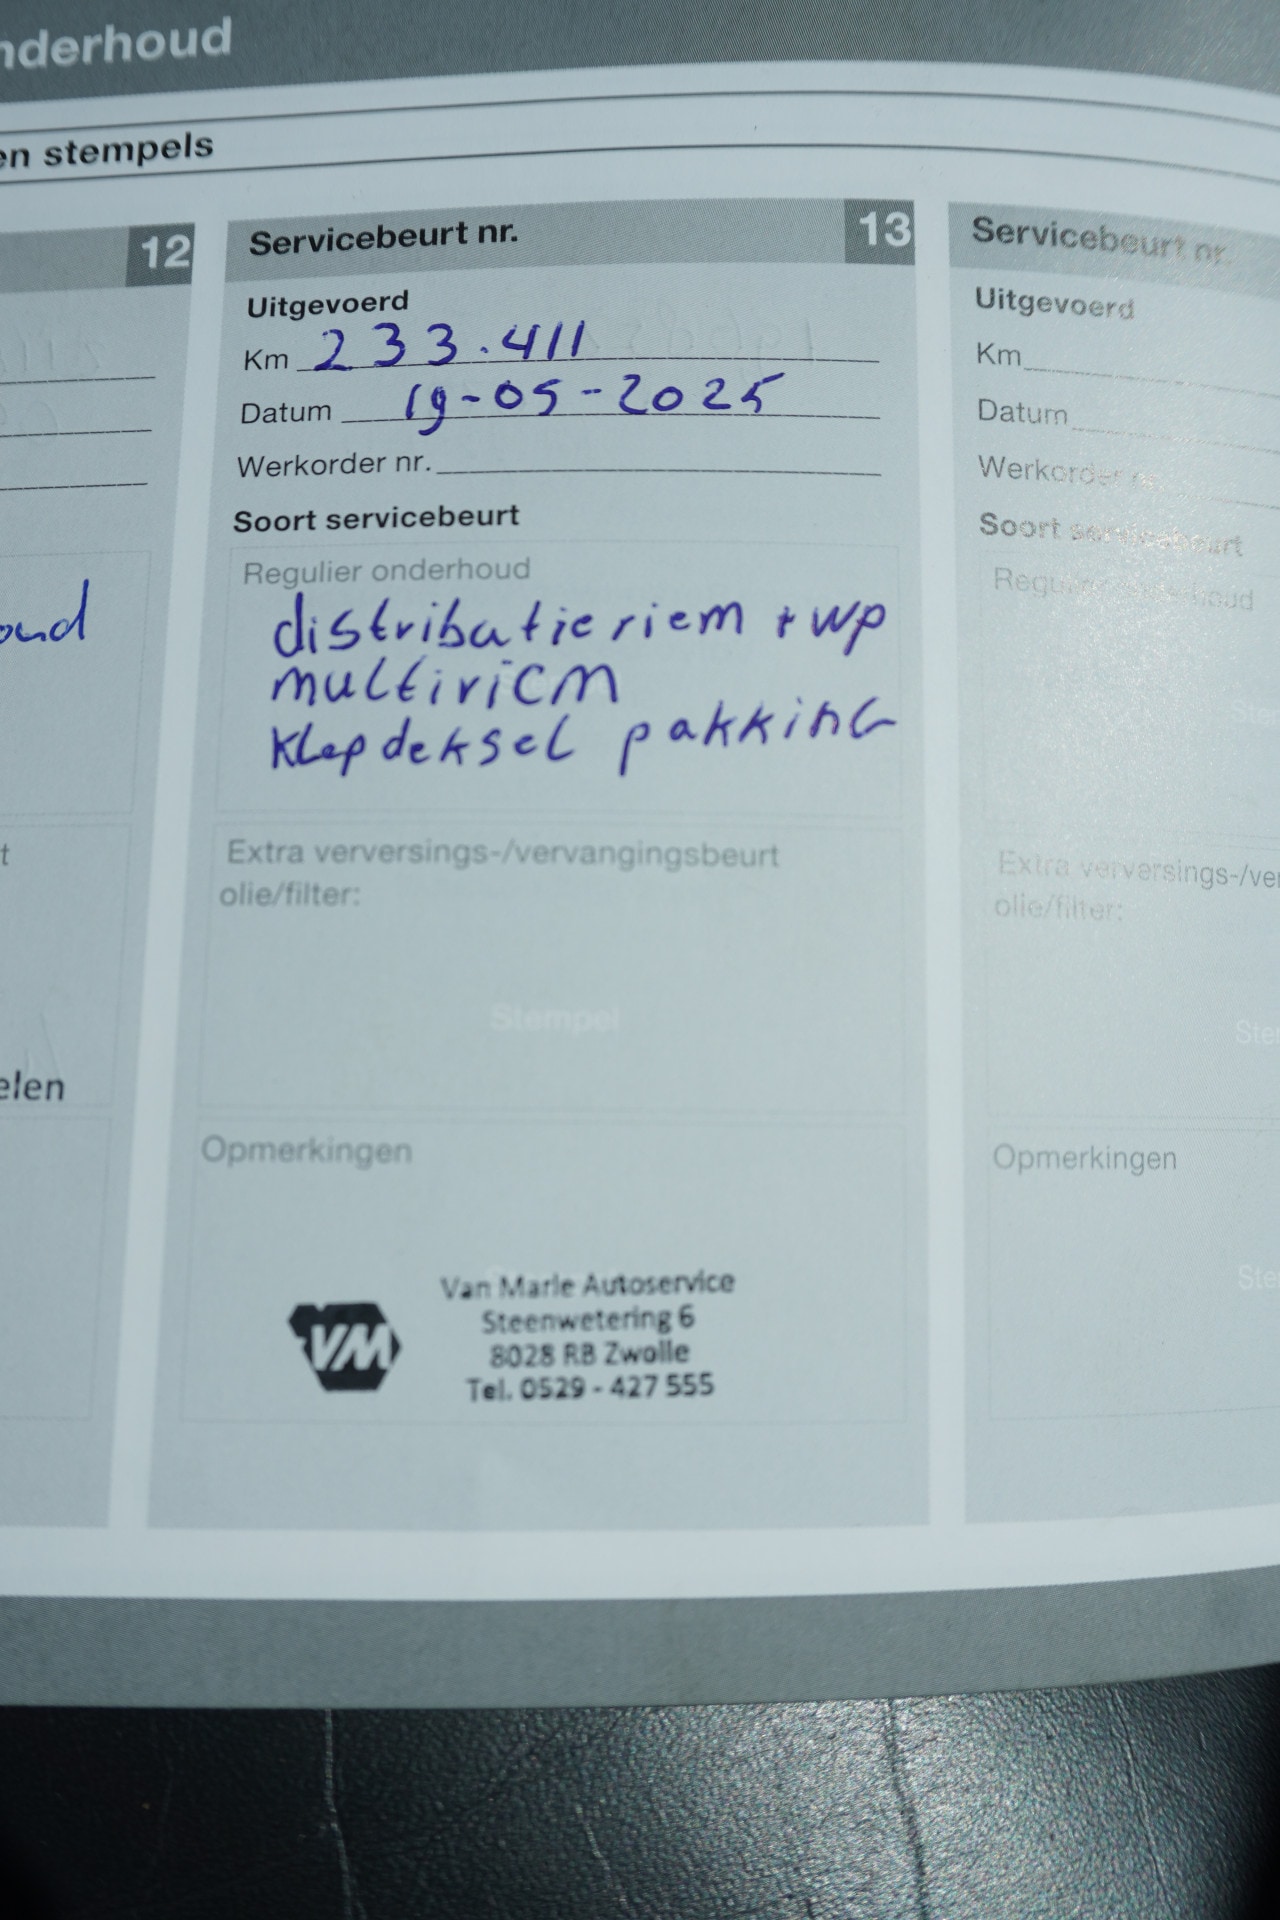 nderhoud
en stempels
12
oud
t
elen
Servicebeurt nr. 13
Uitgevoerd
Km 233.411
Datum 19-05-2025
Werkorder nr.
Soort servicebeurt
Regulier onderhoud
distributieriem + wp
multiriem
klepdeksel pakking
Extra verversings-/vervangingsbeurt
olie/filter:
Stempel
Opmerkingen
VM
Van Marle Autoservice
Steenwetering 6
8028 RB Zwolle
Tel. 0529 - 427 555
Servicebeurt nr.
Uitgevoerd
Km
Datum
Werkorder nr.
Soort servicebeurt
Regulier onderhoud
Ste
Extra verversings-/ver
olie/filter:
Ste
Opmerkingen
Ste